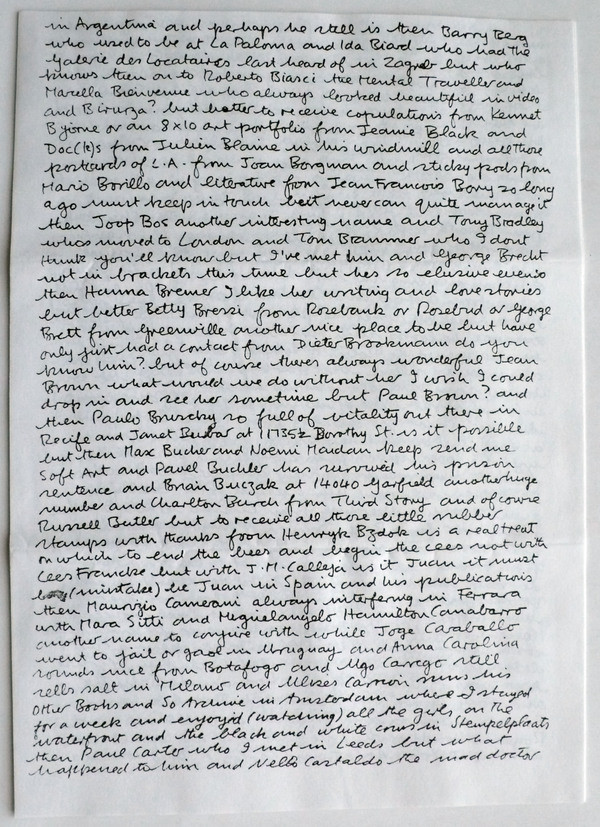 in Argentina and perhaps he still is then Barry Berg
who used to be at La Paloma and Ida Biard who had the
Galerie des Locataires last heard of in Zagreb but who
knows then on to Roberto Biasci the Mental Traveller and
Marcella Bienvenue who always looked beautiful in video
and Bizurza? but better to receive copulations from Kennet
Bjorne or an 8x10 art portfolio from Jeanie Black and
Doc(k)s from Julien Blaine in his windmill and all those
postcards of L.A. from Joan Borgman and sticky pods from
Mario Borillo and literature from Jean Francois Bory so long
ago must keep in touch but never can quite manage it
then Joop Bos another interesting name and Tony Bradley
whos moved to London and Tom Brammer who I dont
think you'll know but I've met him and George Brecht
not in brackets this time but hes so elusive evenso
then Hanna Bremer I like her writing and love stories
but better Betty Bressi from Rosebank or Rosebud or George
Brett from Greenville another nice place to be but have
only just had a contact from Dieter Brookmann do you
know him? but of course theres always wonderful Jean
Brown what would we do without her I wish I could
drop in and see her sometime but Paul Brown? and
then Paulo Bruscky so full of vitality out there in
Recife and Janet at 11735½ Dorothy St. is it possible
but then Max Bucher and Noemi Maidan keep send me
Soft Art and Pavel Buchler has survived his prison
sentence and Brian Buczak at 14040 Garfield another huge
number and Charlton Burch from Third Story and of course
Russell Butler but to receive all those little rubber
stamps with thanks from Henryk Bzdok is a real treat
on which to end the bees and begin the cees not with
Cees Francke but with J.M. Calleja is it Juan it must
(mistake) be Juan in Spain and his publications
then Maurizio Camerani always interfering in Ferrara
with Mara Sitti and Miguelangelo Hamilton Canabarro
another name to conjure with while Joge Caraballo
went to jail or gaol in Uruguay and Anna Carolina
sounds nice from Botafogo and Ugo Carrega still
sells salt in Milano and Ulises Carrion runs his
Other Books and So Archive in Amsterdam where I stayed
for a week and enjoy'd (watching) all the girls on the
waterfront and the black and white cows in Stempelplaats
then Paul Carter who I met in Leeds but what
happened to him and Nello Castaldo the mad doctor